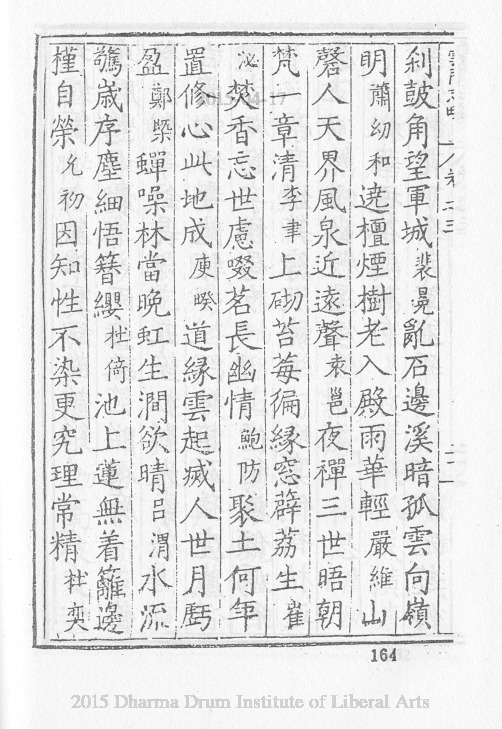 刹鼓角望軍城裴晃亂石邊溪暗孤雲向嶺
明蕭幼和遶檀煙樹老入殿雨華輕嚴維山
磬人天界風泉近遠聲袁邕夜禪三世晤朝
梵一章清李聿上砌苔莓徧緣窓薜荔生崔
泌焚香忘世慮啜茗長幽情鮑防聚土何年
置修心此地成庾睽道緣雲起滅人世月虧
盈鄭槩蟬噪林當晚虹生澗欲晴呂渭水流
驚歳存塵細悟簪纓杜倚池上蓮無着籬邊
槿自榮允初因知性不染更究理常精杜奕
164
2015 Dharma Drum Institute of Liberal Arts